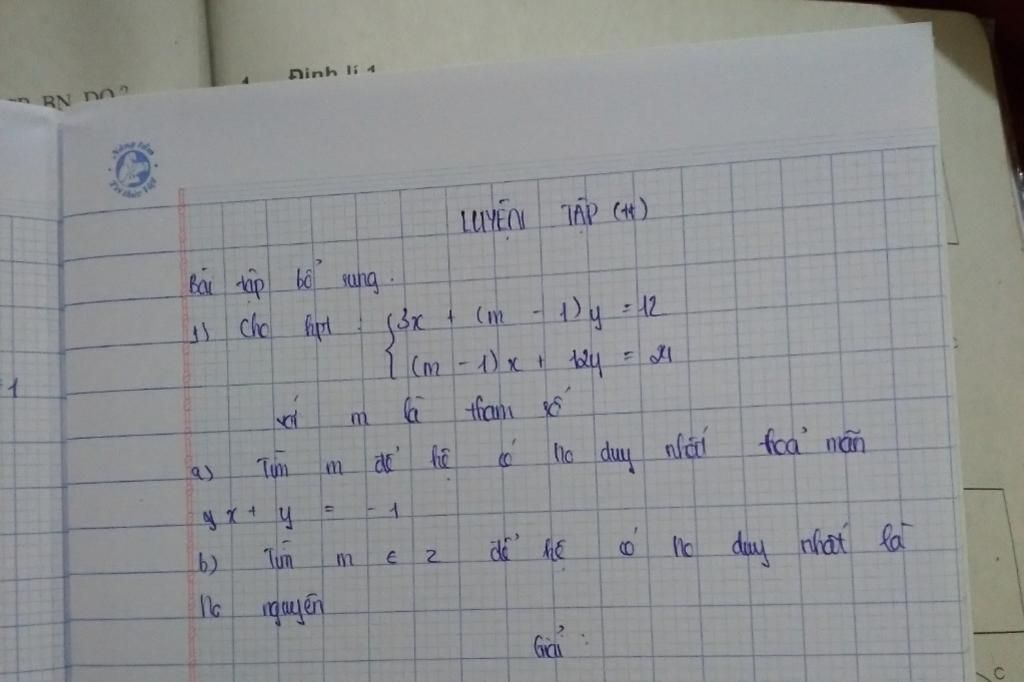 BN DO?
1 Định lí 1
Nâng tầm
Tri thức Việt
LUYỆN TẬP (tt)
Bài tập bổ sung.
1) Cho hpt : {3x + (m - 1)y = 12
(m - 1)x + 12y = 24
với m là tham số
1
a) Tìm m để hệ có no duy nhất thoả mãn
x + y = -1
b) Tìm m ∈ Z để hệ có no duy nhất là
no nguyên
Giải :
C